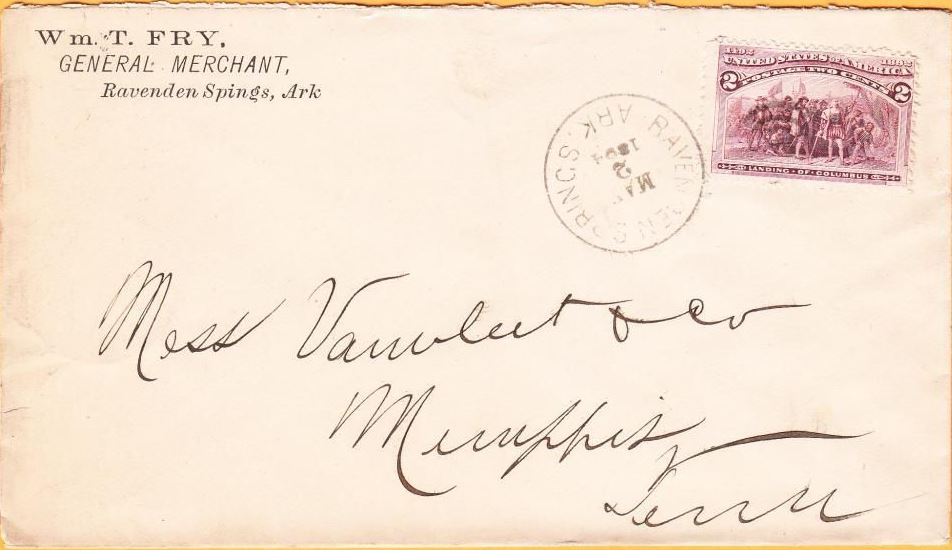 Wm. T. FRY,
GENERAL MERCHANT,
Ravenden Spings, Ark
1492 1892
UNITED STATES OF AMERICA
2 POSTAGE TWO CENTS 2
LANDING · OF · COLUMBUS
RAVENDEN SPRINGS ARK.
2
1894
Mess Vanvleet & Co
Memphis
Tenn